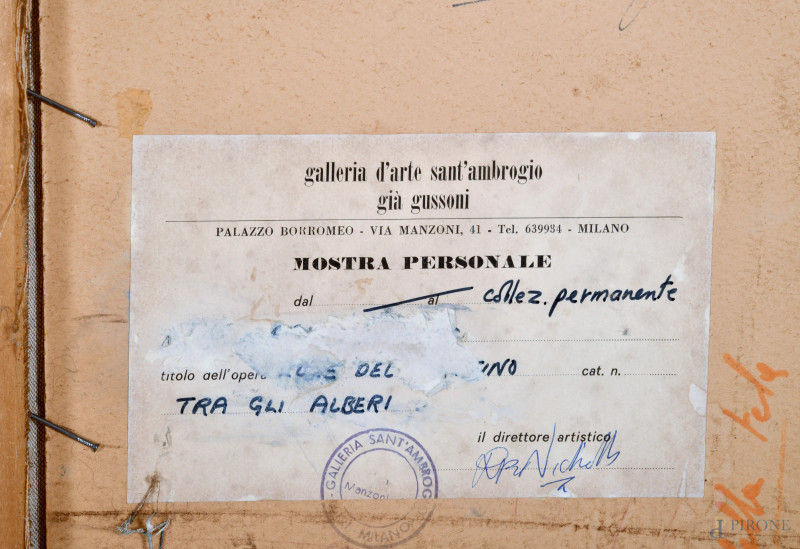 galleria d'arte sant'ambrogio
già gussoni
PALAZZO BORROMEO - VIA MANZONI, 41 - Tel. 639984 - MILANO
MOSTRA PERSONALE
dal al collez. permanente
A
titolo dell'opera DEL INO cat. n.
TRA GLI ALBERI
il direttore artistico
GALLERIA SANT'AMBROG
Manzoni
MILANO
tela
PIRONE